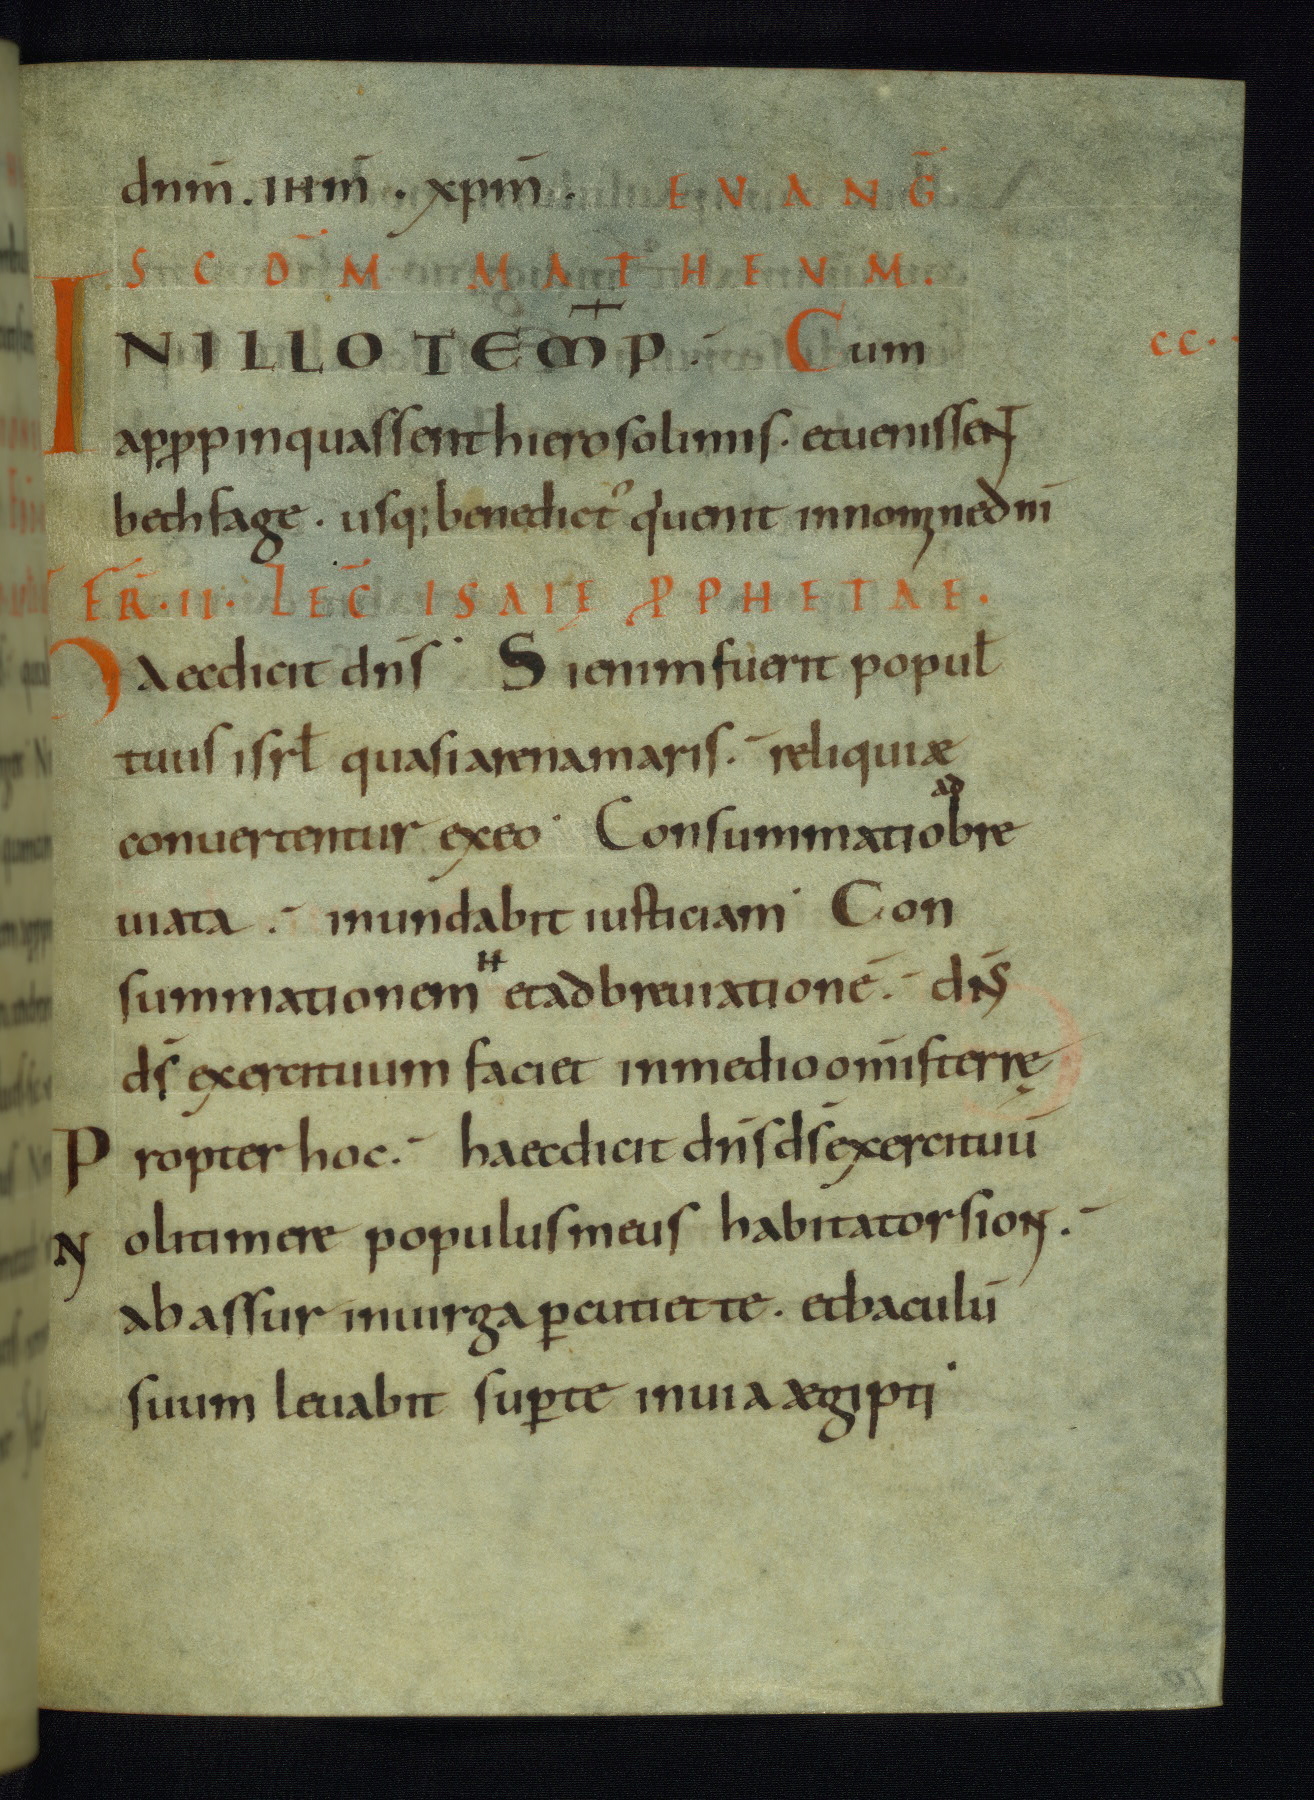 dnm̄. ihm̄. xpm̄. EVANḠ
SCDM̄ MATHEVM.
INILLO TEMP̄. Cum cc.
appropinquassent hierosolimis. et uenissent
bethfage. usq; benedict' qui uenit innomine dnī
FR̄. II. LEC̄ ISAIE PROPHETAE.
Haec dicit dnś Si enim fuerit popul̄
tuus isrl̄ quasi arena maris. reliquiæ
conuertentur exeo Consummatio ad bre
uiata. inundabit iusticiam Con
summationem H et adbreuiationē. dnś
ds̄ exercituum faciet inmedio omīs terrę
Propter hoc. haec dicit dnś ds̄ exercituū
Noli timere populus meus habitator sion.
ab assur inuirga percutiet te. et baculū
suum leuabit super te inuia ægipti